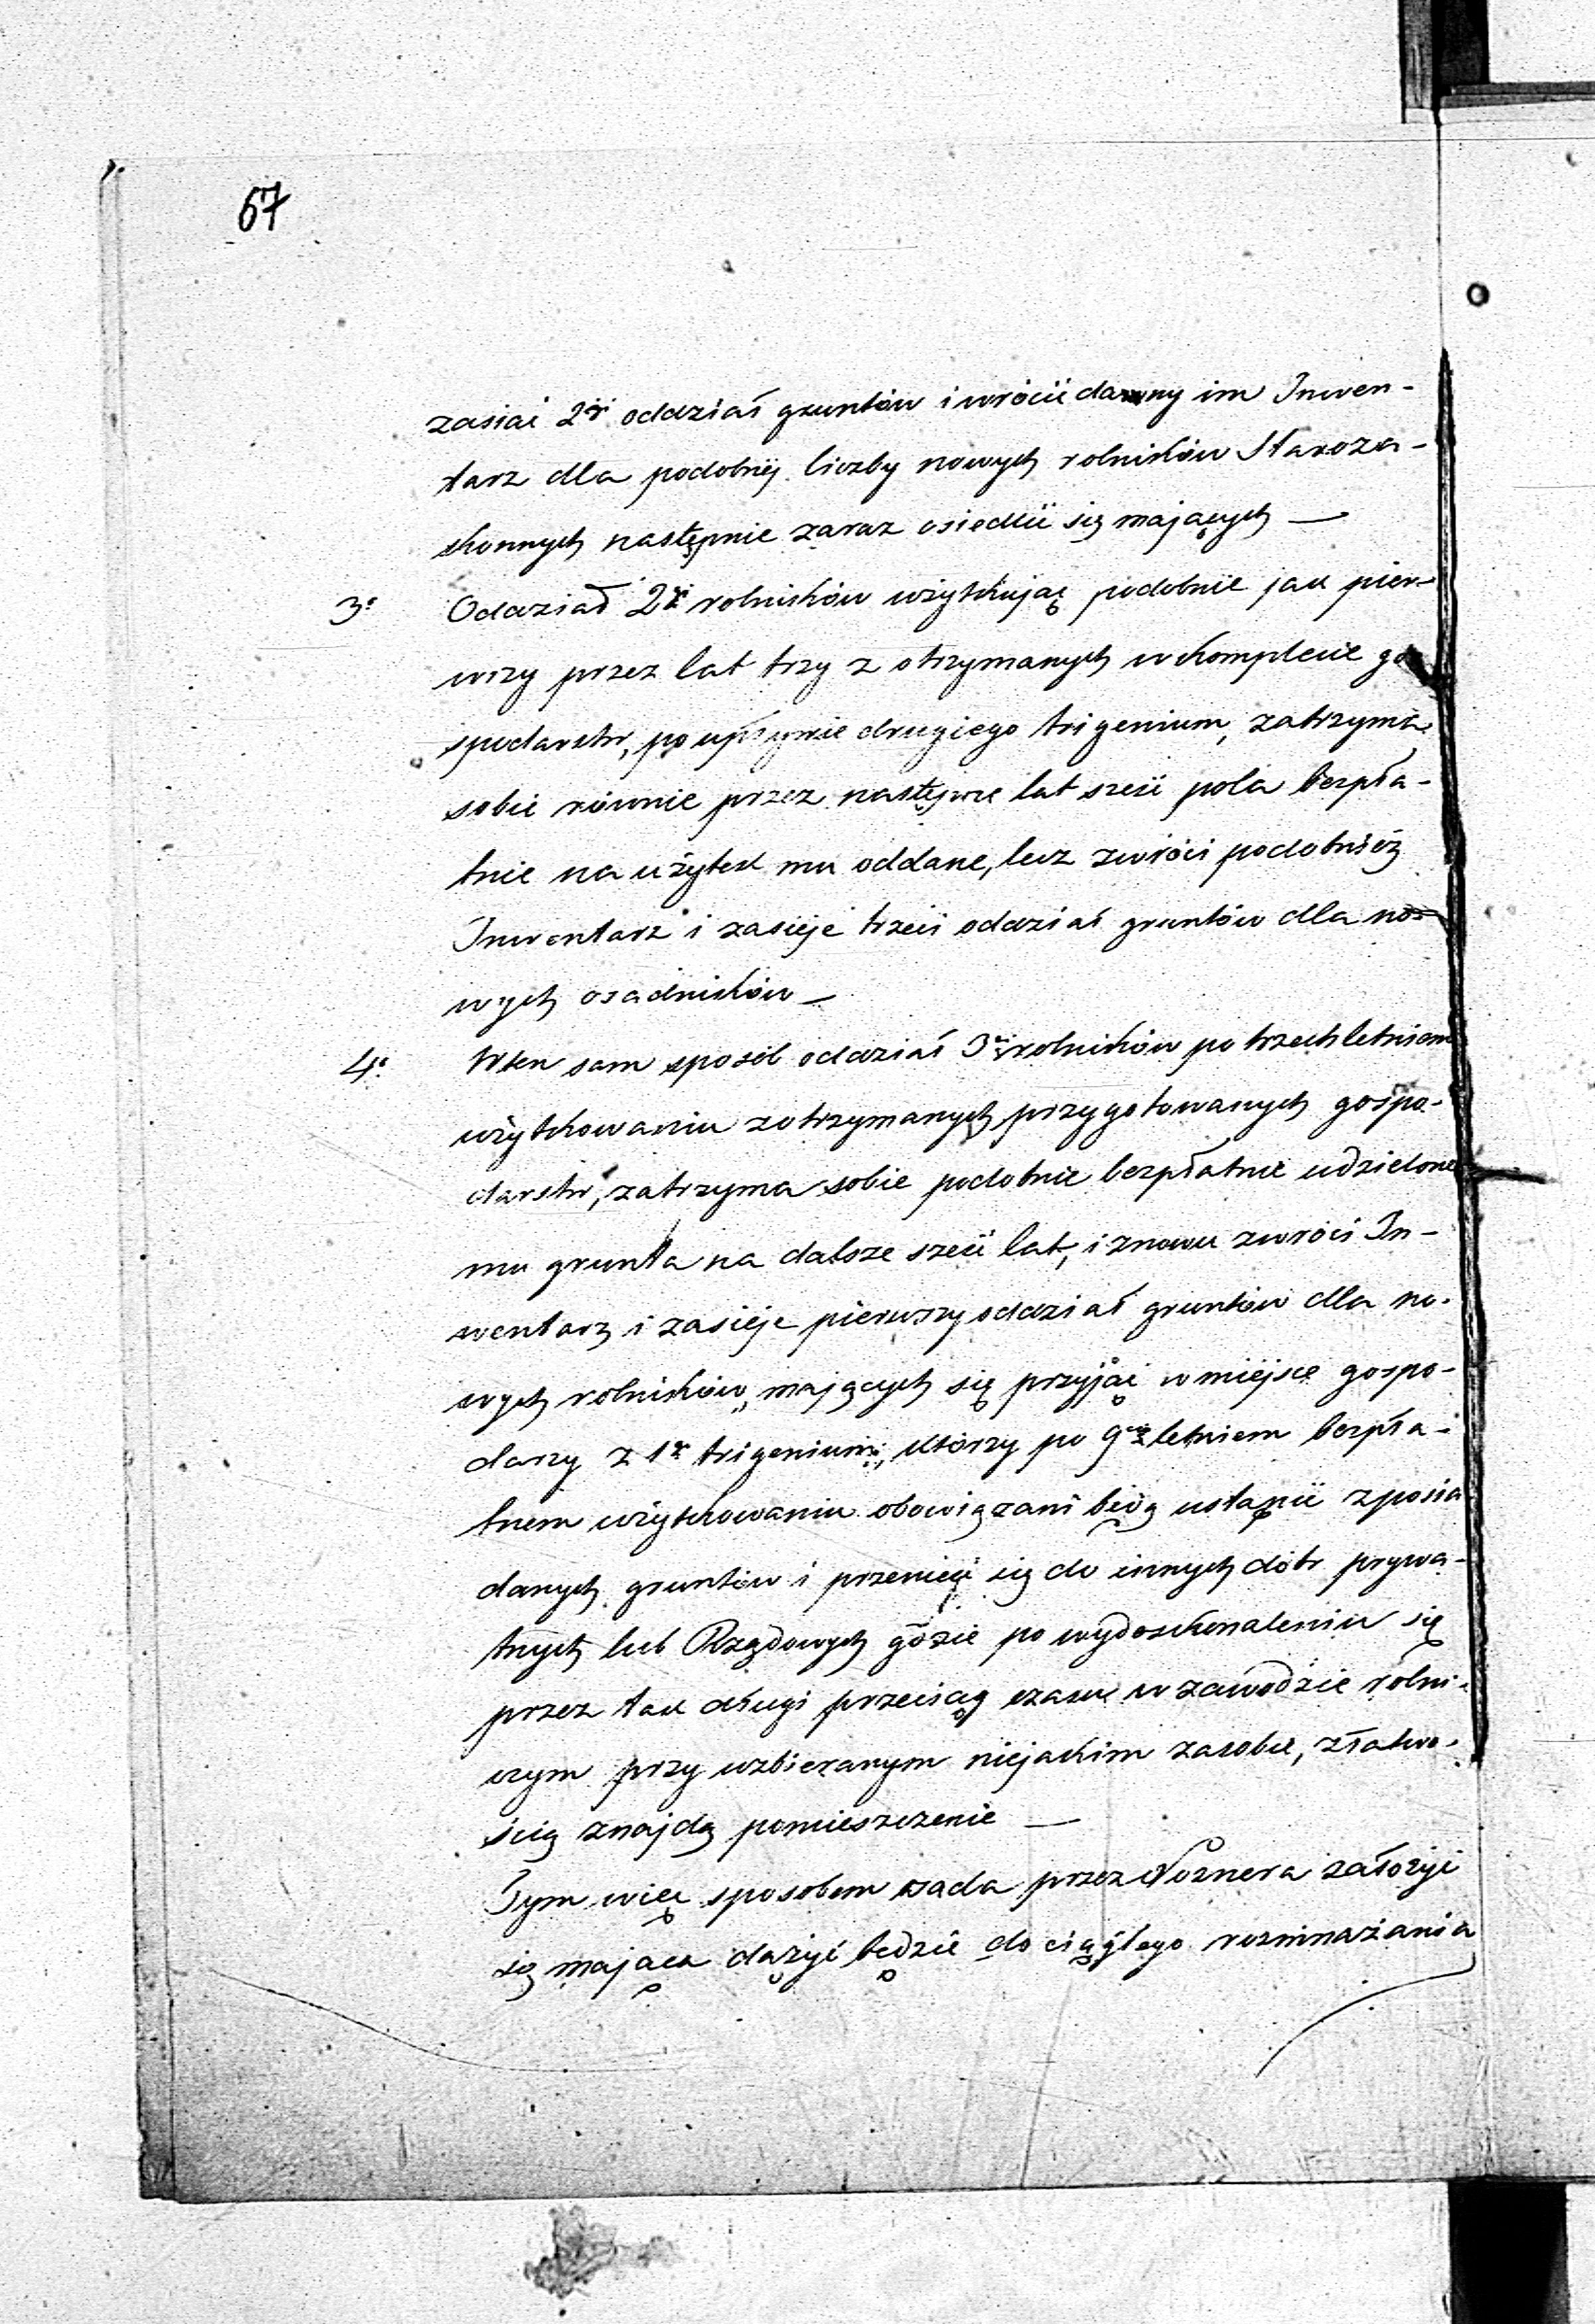 67
zasiać 2gi oddział gruntów i wrócić dawny im Inwen-
tarz dla podobnéj liczby nowych rolników Staroza-
konnych następnie zaraz osiedlić się mających —
3o Oddział 2gi rolników użytkując podobnie jak pier-
wszy przez lat trzy z otrzymanych w komplecie go
spodarstw, po upływie drugiego trigenium, zatrzyma
sobie równie przez następne lat sześć pola bezpła-
tnie na użytek mu oddane, lecz zwróci podobnież
Inwentarz i zasieje trzeci oddział gruntów dla no-
wych osadników —
4o W ten sam sposób oddział 3ci rolników po trzechletniem
użytkowaniu z otrzymanych przygotowanych gospo-
darstw, zatrzyma sobie podobnie bezpłatnie udzielone
mu grunta na dalsze sześć lat, i znowu zwróci In-
wentarz i zasieje pierwszy oddział gruntów dla no-
wych rolników, mających się przyjąć w miéjsce gospo-
darzy z 1go trigenium, którzy po 9cio letniem bezpła-
tnem użytkowaniu obowiązani będą ustąpić z posia
danych gruntów i przenieść się do innych dóbr prywa-
tnych lub Rządowych gdzie po wydoskonaleniu się
przez tak długi przeciąg czasu w zawodzie rolni-
czym przy uzbieranym niejakim zasobie, z łatwo-
ścią znajdą pomieszczenie —
Tym więc sposobem osada przez Poznera założyć
się mająca dążyć będzie do ciągłego rozmnażania